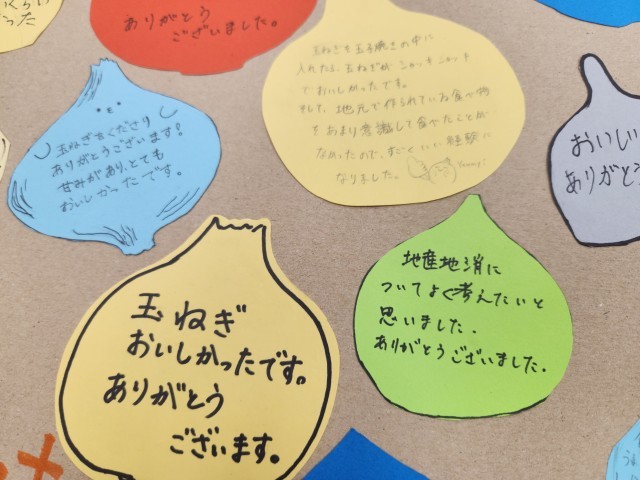 ありがとう
ございました。
玉ねぎを玉子焼きの中に
入れたら、玉ねぎが シャッキ シャッキ
で おいしかったです。
地元で作られている食べ物
をあまり意識して食べたことが
なかったので、すごくいい経験に
なりました。
Yummy!
玉ねぎをくださり
ありがとうございます!
甘みがあり、とても
おいしかったです。
おいしい
ありがとう
地産地消に
ついてよく考えたいと
思いました.
ありがとうございました.
玉ねぎ
おいしかったです。
ありがとう
ございます。